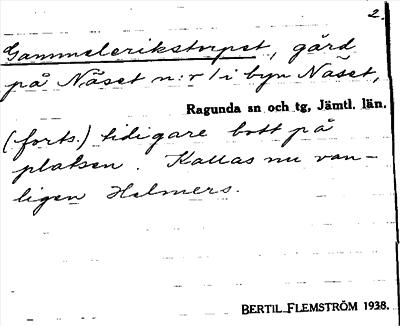 2.
Gammelerikstorpet, gård
på Näset n:r 1 i byn Näset,
Ragunda sn och tg, Jämtl. län.
(forts.) tidigare bott på
platsen. Kallas nu van-
ligen Helmers.
BERTIL FLEMSTRÖM 1938.